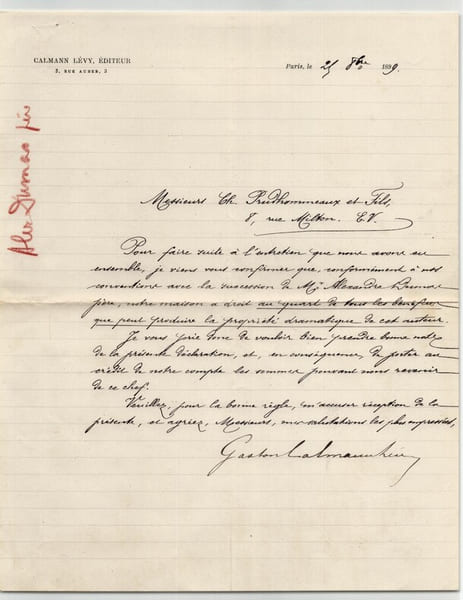 CALMANN LÉVY, ÉDITEUR
3, RUE AUBER, 3
Paris, le 25 8bre 1889.
Alex Dumas père
Messieurs Ch. Prudhommeaux et Fils,
8, rue Milton. E.V.
Pour faire suite à l'entretien que nous avons eu
ensemble, je viens vous confirmer que, conformément à nos
conventions avec la succession de Mr. Alexandre Dumas
père, notre maison a droit au quart de tous les bénéfices
que peut produire la propriété dramatique de cet auteur.
Je vous prie donc de vouloir bien prendre bonne note
de la présente déclaration, et, en conséquence, de porter au
crédit de notre compte les sommes pouvant nous revenir
de ce chef.
Veuillez, pour la bonne règle, m'accuser réception de la
présente, et agréez, Messieurs, mes salutations les plus empressées,
Gaston Calmann Lévy